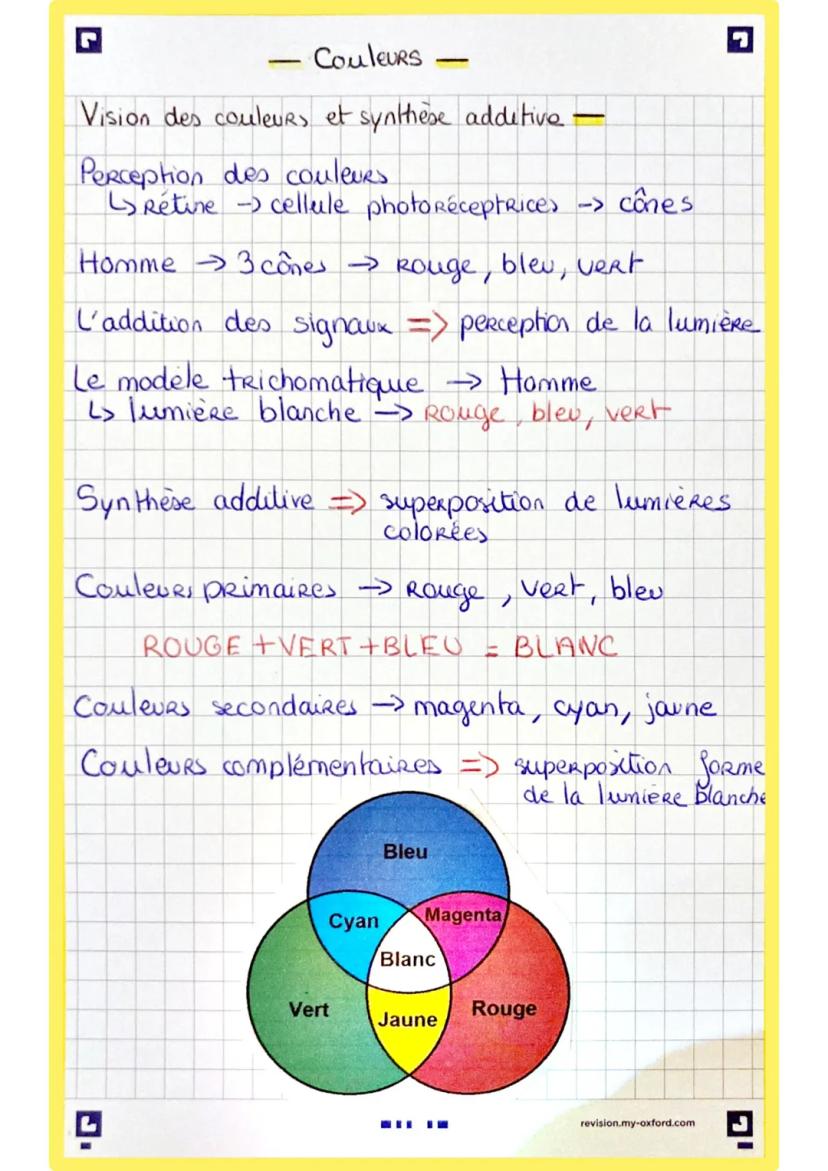 — Couleurs —
Vision des couleurs et synthèse additive —
Perception des couleurs
↳ Rétine -> cellule photoréceptrices -> cônes
Homme -> 3 cônes -> Rouge, bleu, vert
L'addition des signaux => perception de la lumière
Le modèle trichomatique -> Homme
↳ lumière blanche -> Rouge, bleu, vert
Synthèse additive => superposition de lumières
colorées
Couleurs primaires -> Rouge, vert, bleu
ROUGE + VERT + BLEU = BLANC
Couleurs secondaires -> magenta, cyan, jaune
Couleurs complémentaires => superposition forme
de la lumière blanche
Bleu
Cyan
Magenta
Blanc
Vert
Jaune
Rouge
revision.my-oxford.com